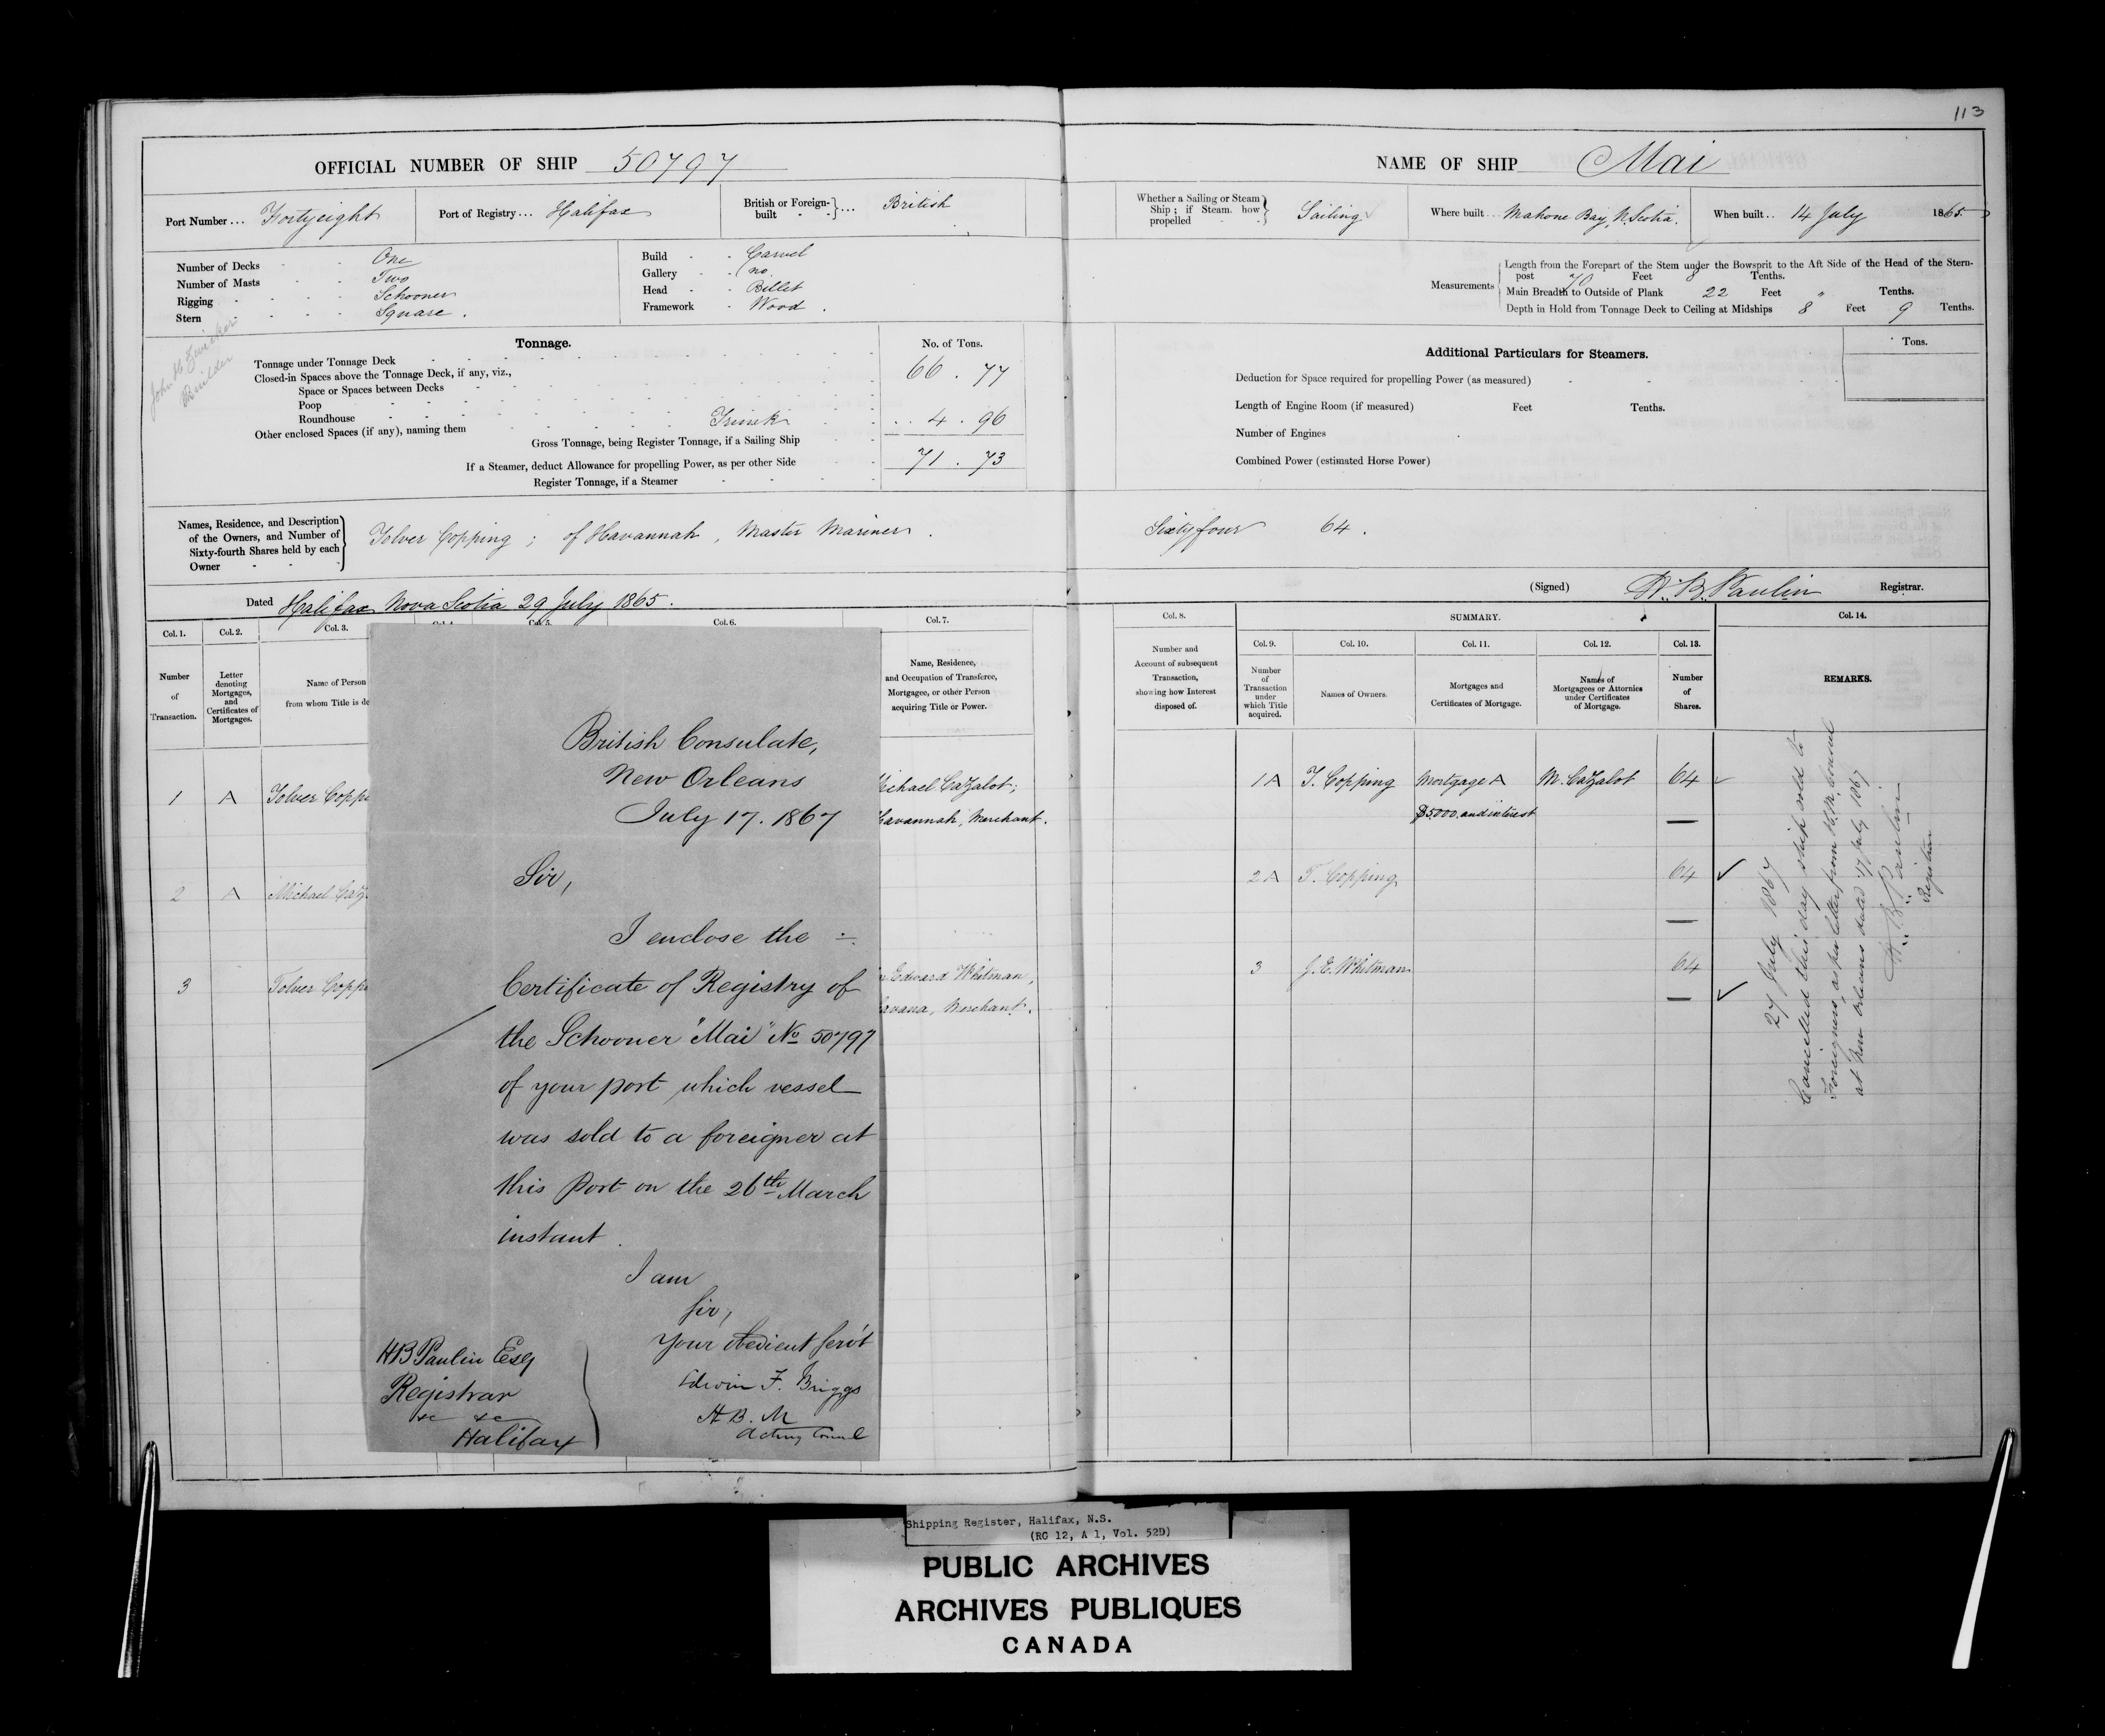 113
OFFICIAL NUMBER OF SHIP 50797
Port Number ... Fortyeight
Port of Registry ... Halifax
British or Foreign-built - - } ... British
Number of Decks - - One
Number of Masts - - Two
Rigging - - - - Schooner
Stern - - - - Square.
Build - - Carvel
Gallery - - no
Head - - Billet
Framework - Wood.
John H Zwicker
Builder
Tonnage.
No. of Tons.
Tonnage under Tonnage Deck 66 . 77
Closed-in Spaces above the Tonnage Deck, if any, viz.,
Space or Spaces between Decks
Poop
Roundhouse
Other enclosed Spaces (if any), naming them Trunk 4 . 96
Gross Tonnage, being Register Tonnage, if a Sailing Ship
If a Steamer, deduct Allowance for propelling Power, as per other Side 71 . 73
Register Tonnage, if a Steamer
Names, Residence, and Description
of the Owners, and Number of
Sixty-fourth Shares held by each
Owner
Tolver Copping ; of Havannah, Master Mariner.
Dated Halifax Nova Scotia 29 July 1865.
Col. 1.
Col. 2.
Col. 3.
Col. 5.
Col. 6.
Col. 7.
Number
of
Transaction.
Letter
denoting
Mortgages,
and
Certificates of
Mortgages.
Name of Person
from whom Title is de
Name, Residence,
and Occupation of Transferee,
Mortgagee, or other Person
acquiring Title or Power.
1 A Tolver Coppi
ichael Cazalot;
avannah, Merchant.
2 A Michael Caz
3 Tolver Coppi
Edward Whitman,
avana, Merchant.
British Consulate,
New Orleans
July 17. 1867
Sir,
I enclose the
Certificate of Registry of
the Schooner "Mai" No 50797
of your port which vessel
was sold to a foreigner at
this Port on the 26th March
instant.
I am
Sir,
Your obedient servt
Edwin F. Briggs
H. B. M
Acting Consul
HB Paulin Esq
Registrar
&c &c
Halifax
NAME OF SHIP Mai
Whether a Sailing or Steam
Ship; if Steam, how
propelled - -
Sailing
Where built ... Mahone Bay, N. Scotia.
When built .. 14 July 1865.
Measurements
Length from the Forepart of the Stem under the Bowsprit to the Aft Side of the Head of the Stern-
post 70 Feet 8 Tenths.
Main Breadth to Outside of Plank 22 Feet " Tenths.
Depth in Hold from Tonnage Deck to Ceiling at Midships 8 Feet 9 Tenths.
Additional Particulars for Steamers.
Tons.
Deduction for Space required for propelling Power (as measured)
Length of Engine Room (if measured) Feet Tenths.
Number of Engines
Combined Power (estimated Horse Power)
Sixtyfour 64.
(Signed) H. B. Paulin Registrar.
Col. 8.
SUMMARY.
Col. 14.
Col. 9.
Col. 10.
Col. 11.
Col. 12.
Col. 13.
Number and
Account of subsequent
Transaction,
showing how Interest
disposed of.
Number
of
Transaction
under
which Title
acquired.
Names of Owners.
Mortgages and
Certificates of Mortgage.
Names of
Mortgagees or Attornies
under Certificates
of Mortgage.
Number
of
Shares.
REMARKS.
1A T. Copping Mortgage A M. Cazalot 64
$5000. and interest
2A T. Copping 64
3 J. E. Whitman 64
27 July 1867
Cancelled this day ship sold to
Foreigners, as per letter from H.B.M. Consul
at New Orleans dated 17 July 1867
H. B. Paulin
Registrar
Shipping Register, Halifax, N.S.
(RG 12, A 1, Vol. 52D)
PUBLIC ARCHIVES
ARCHIVES PUBLIQUES
CANADA